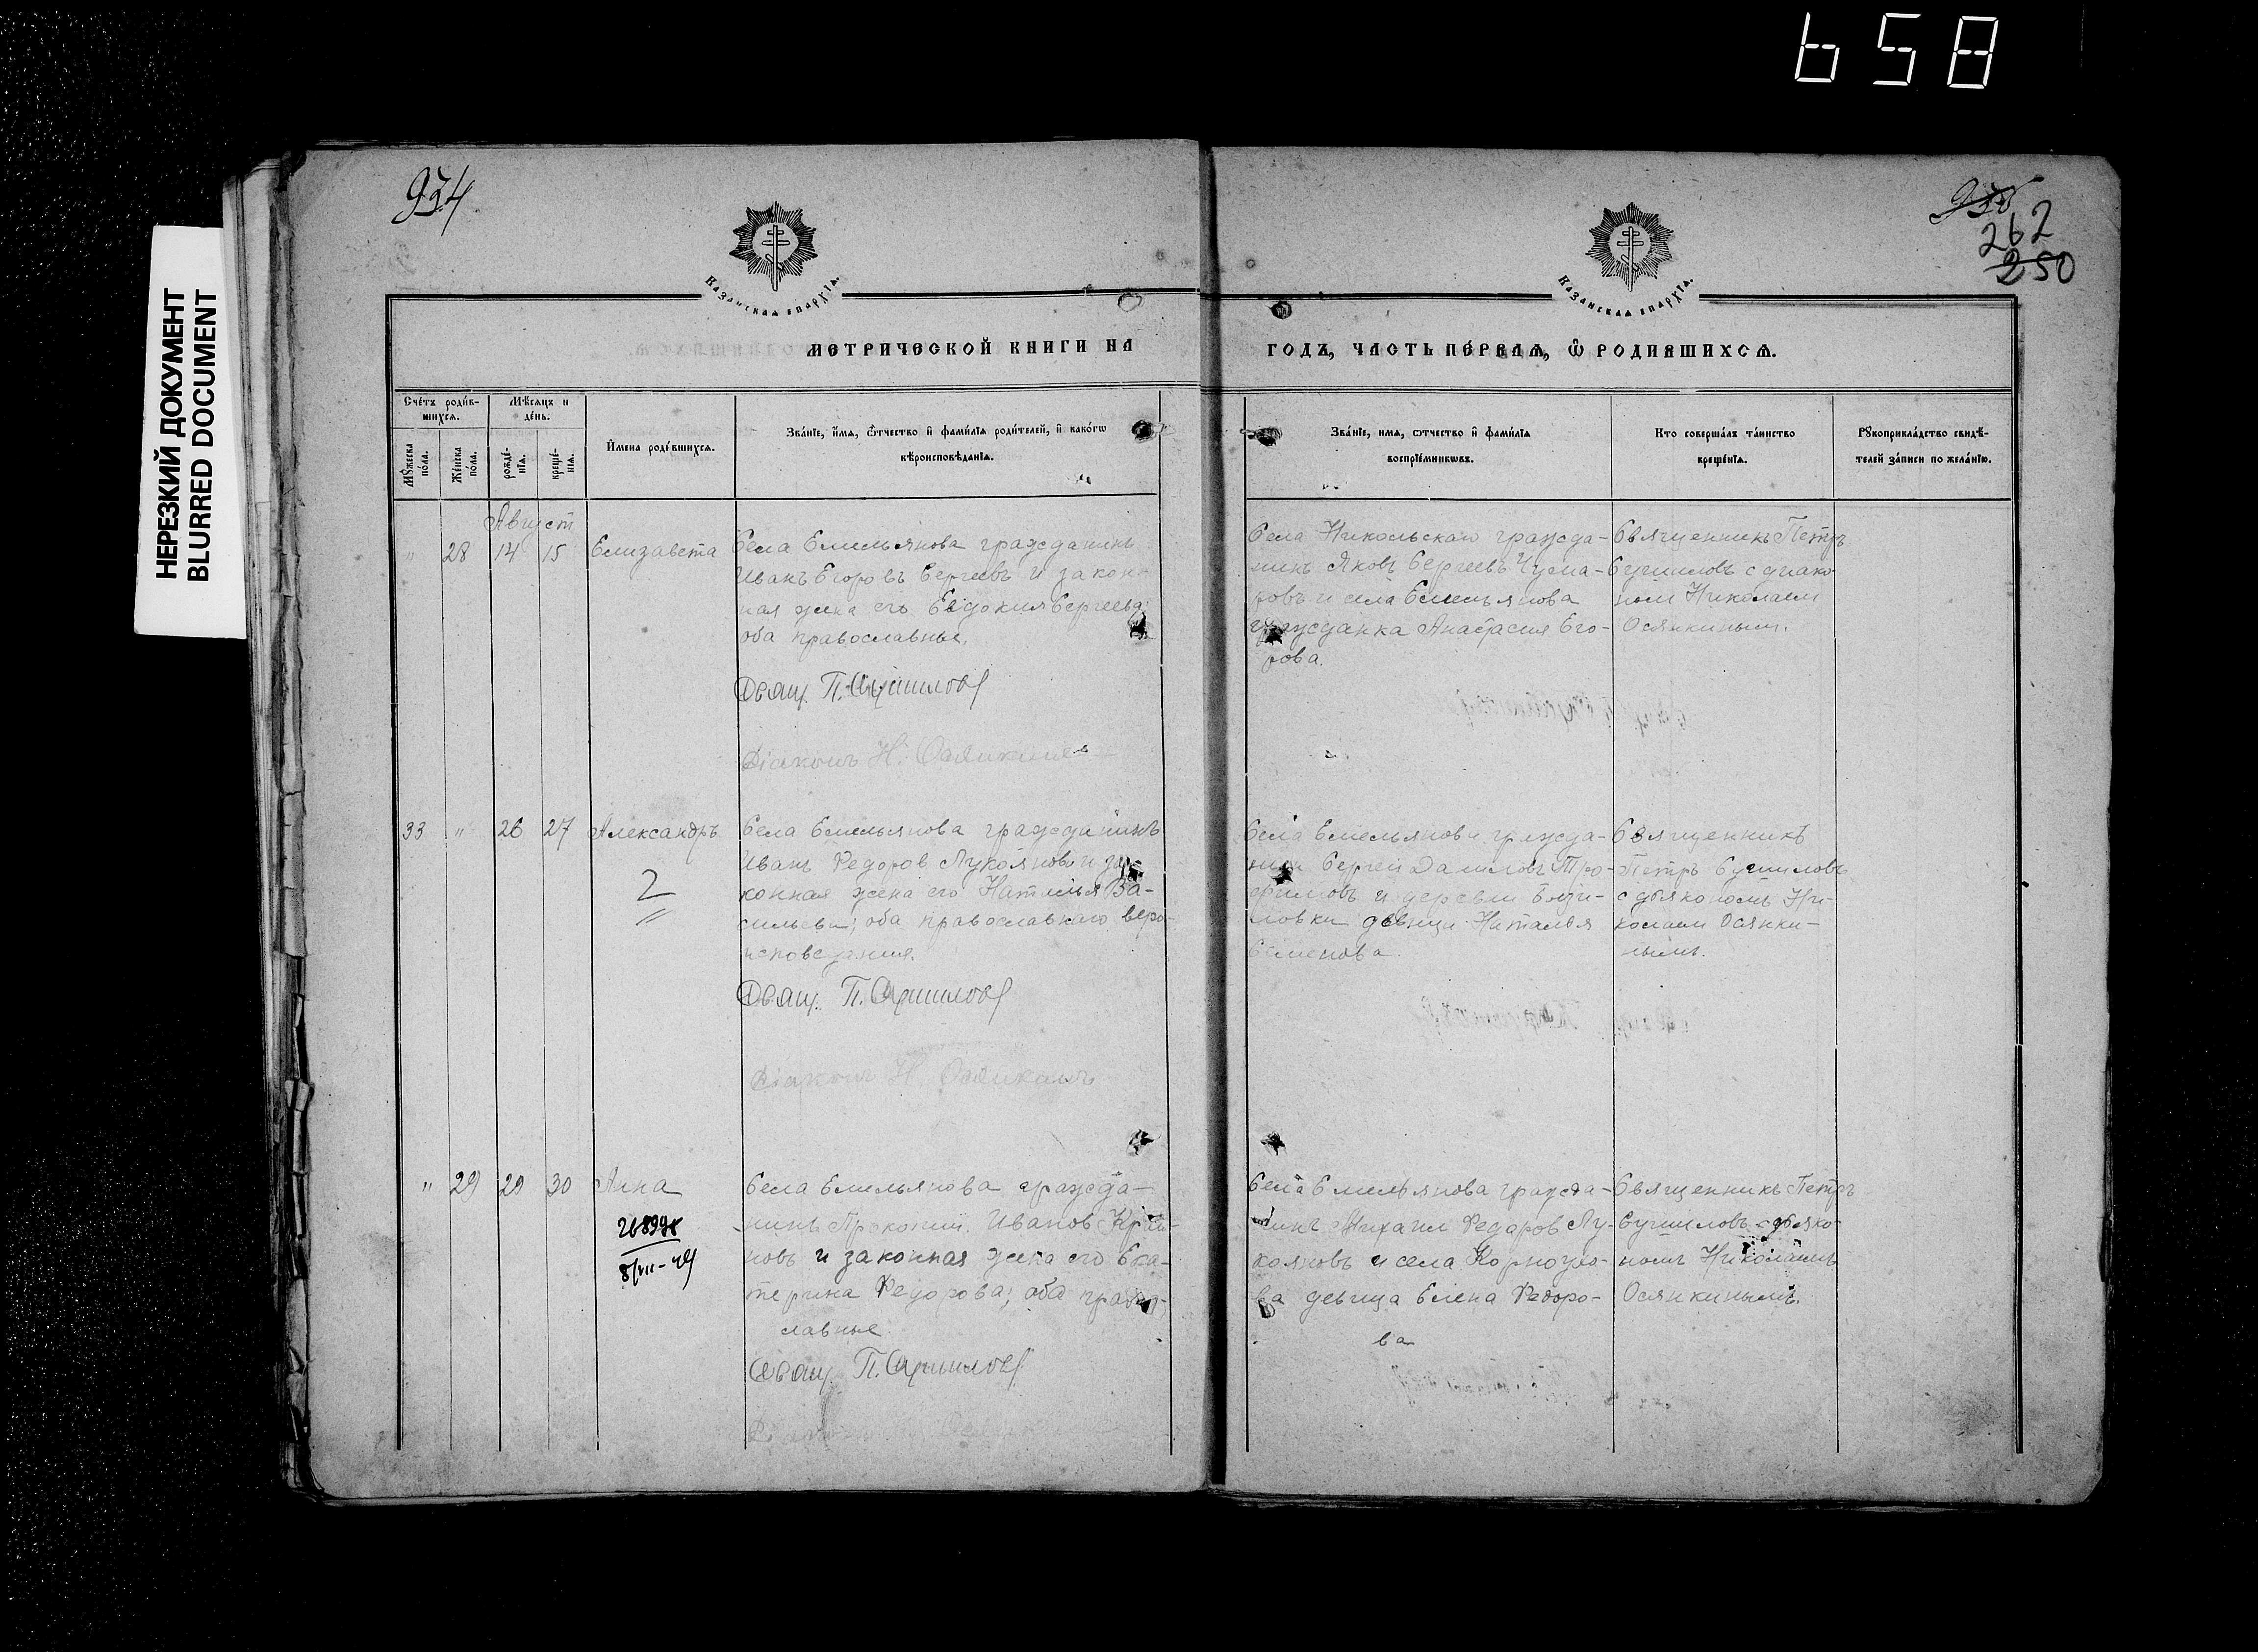 658
НЕРЕЗКИЙ ДОКУМЕНТ
BLURRED DOCUMENT
934
262
250
Казанская епархїа.
Казанская епархїа.
МЕТРИЧЕСКОЙ КНИГИ НА
ГОДЪ, ЧАСТЬ ПЕ́РВАѦ, Ѿ РОДИВШИХСѦ.
Сче́тъ роди́в-
шихсѧ.
Мѣ́сѧцъ и
де́нь.
Мꙋ́жеска по́ла.
Же́нска по́ла.
рожде́-нїѧ.
креще́-нїѧ.
И҆мена роди́вшихсѧ.
Зва́нїе, и҆мѧ, ѻ҆́тчество и҆ фами́лїѧ роди́телей, и҆ како́гѡ
вѣроисповѣ́данїѧ.
Зва́нїе, имѧ, ѻтчество и҆ фами́лїѧ
воспрїе́мникѡвъ.
Кто соверша́лъ та́инство
креще́нїѧ.
Рꙋкоприкла́дство свидѣ́-
телей за́писи по жела́нїю.
Август
" 28 14 15 Елизавета
Села Емельянова гражданинъ
Иванъ Егоровъ Сергеевъ и закон-
ная жена его Евдокия Сергеева;
оба православные.
Свящ. П. Сушилов
Діаконъ Н. Осянкинъ
Села Никольскаго гражда-
нинъ Яковъ Сергеевъ Чума-
ровъ и села Емельянова
гражданка Анастасия Его-
рова.
Священникъ Петръ
Сушиловъ с диако-
ном Николаем
Осянкиным.
33 " 26 27 Александръ
2
Села Емельянова гражданинъ
Иванъ Федоров Лукоянов и за-
конная жена его Наталья Ва-
сильева; оба православнаго веро-
исповедания.
Свящ. П. Сушилов
Діаконъ Н. Осянкинъ
Села Емельянова гражда-
нин Сергей Данилов Тро-
фимовъ и деревни
ловки девица Наталья
Семенова.
Священникъ
Петръ Сушиловъ
с дьякономъ Ни-
колаем Осянки-
нымъ.
" 29 29 30 Анна
8/VII-49
Села Емельянова гражда-
нинъ Прокопий Иванов
новъ и законная жена его Ека-
терина Федорова; оба право-
славные.
Свящ. П. Сушилов
Села Емельянова гражда-
нинъ Михаил Федоров Лу-
кояновъ и села Корноухо-
ва девица Елена Федоро-
ва
Священникъ Петръ
Сушиловъ с дьяко-
номъ Николаемъ
Осянкинымъ.